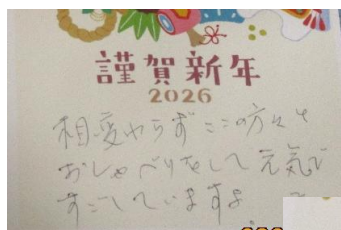 謹賀新年
2026
相変わらずここの方々と
おしゃべりをして元気で
すごしていますよ